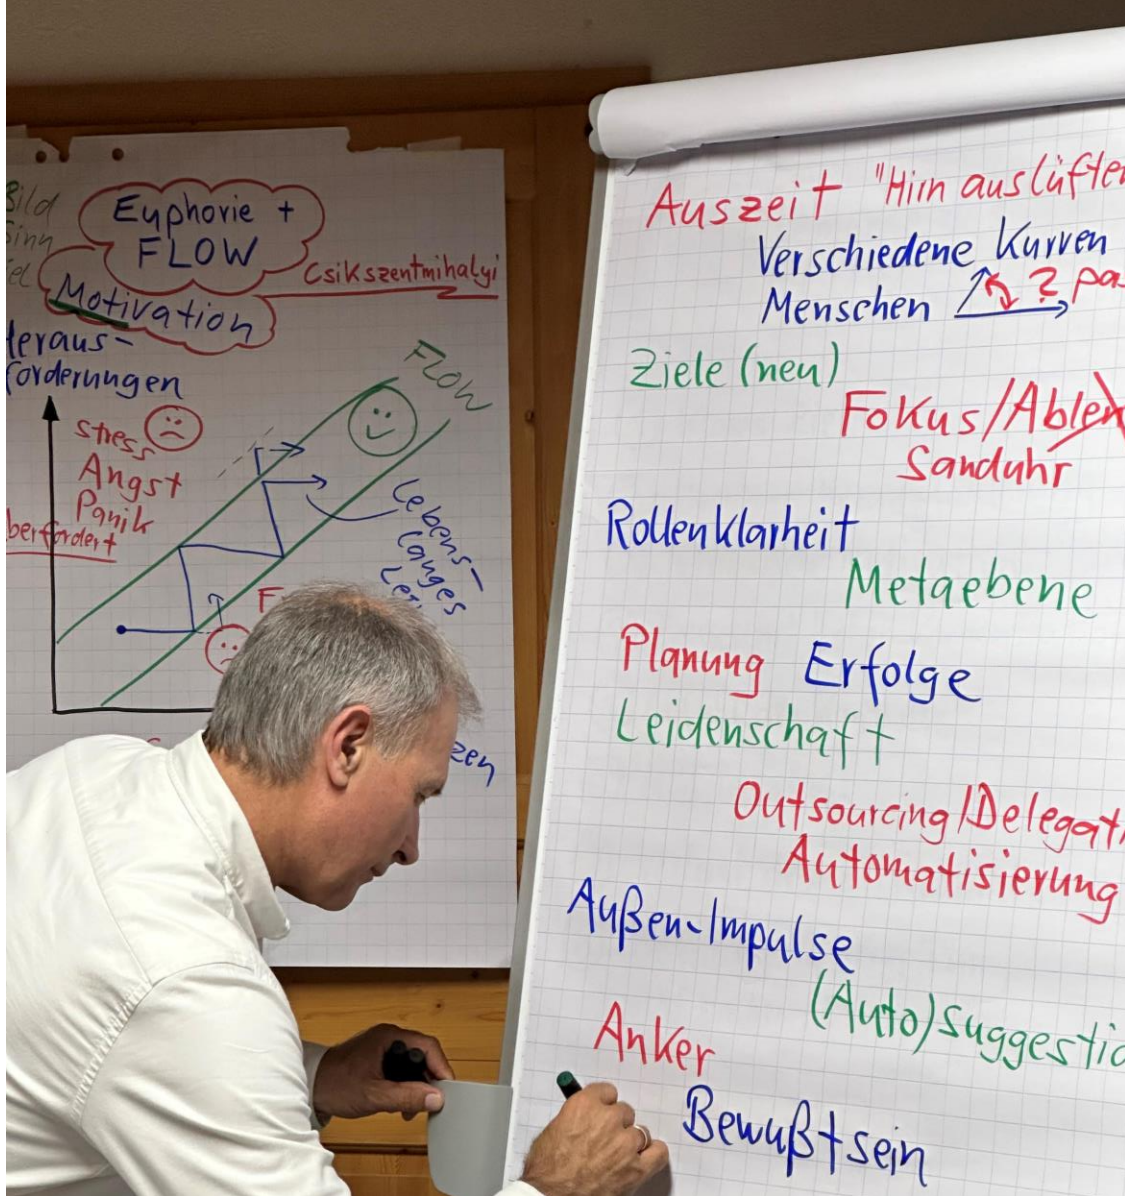 Bild
Sinn
Euphorie +
FLOW
Csikszentmihalyi
Motivation
Heraus-
forderungen
FLOW
stress
Angst
Panik
Überfordert
Lebens-
langes
Auszeit "Hirn auslüften
Verschiedene Kurven
Menschen ?
Ziele (neu)
Fokus/Ablen
Sanduhr
Rollenklarheit
Metaebene
Planung Erfolge
Leidenschaft
Outsourcing/Delegati
Automatisierung
Außen-Impulse
(Auto)suggestio
Anker
Bewußtsein